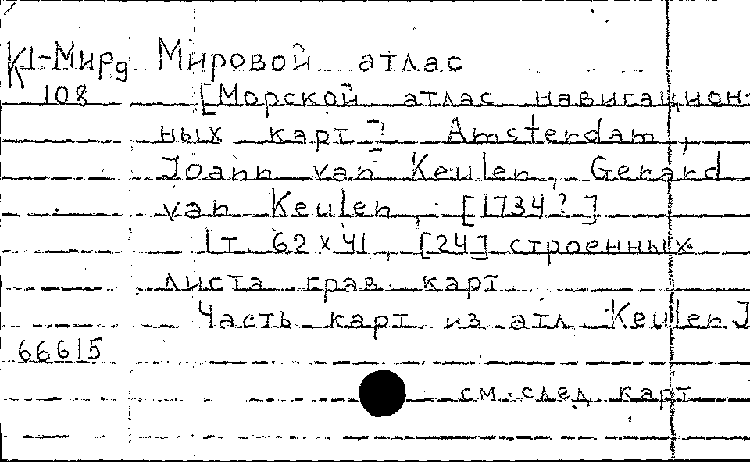 К1-Мирд Мировой атлас
108 [Морской атлас навигацион-
ных карт] Amsterdam,
Joann van Keulen, Gerard
van Keulen, [1734?]
1т. 62х41, [24] строенных
листа грав. карт
Часть карт из атл. Keulen J
66615
см. след карт